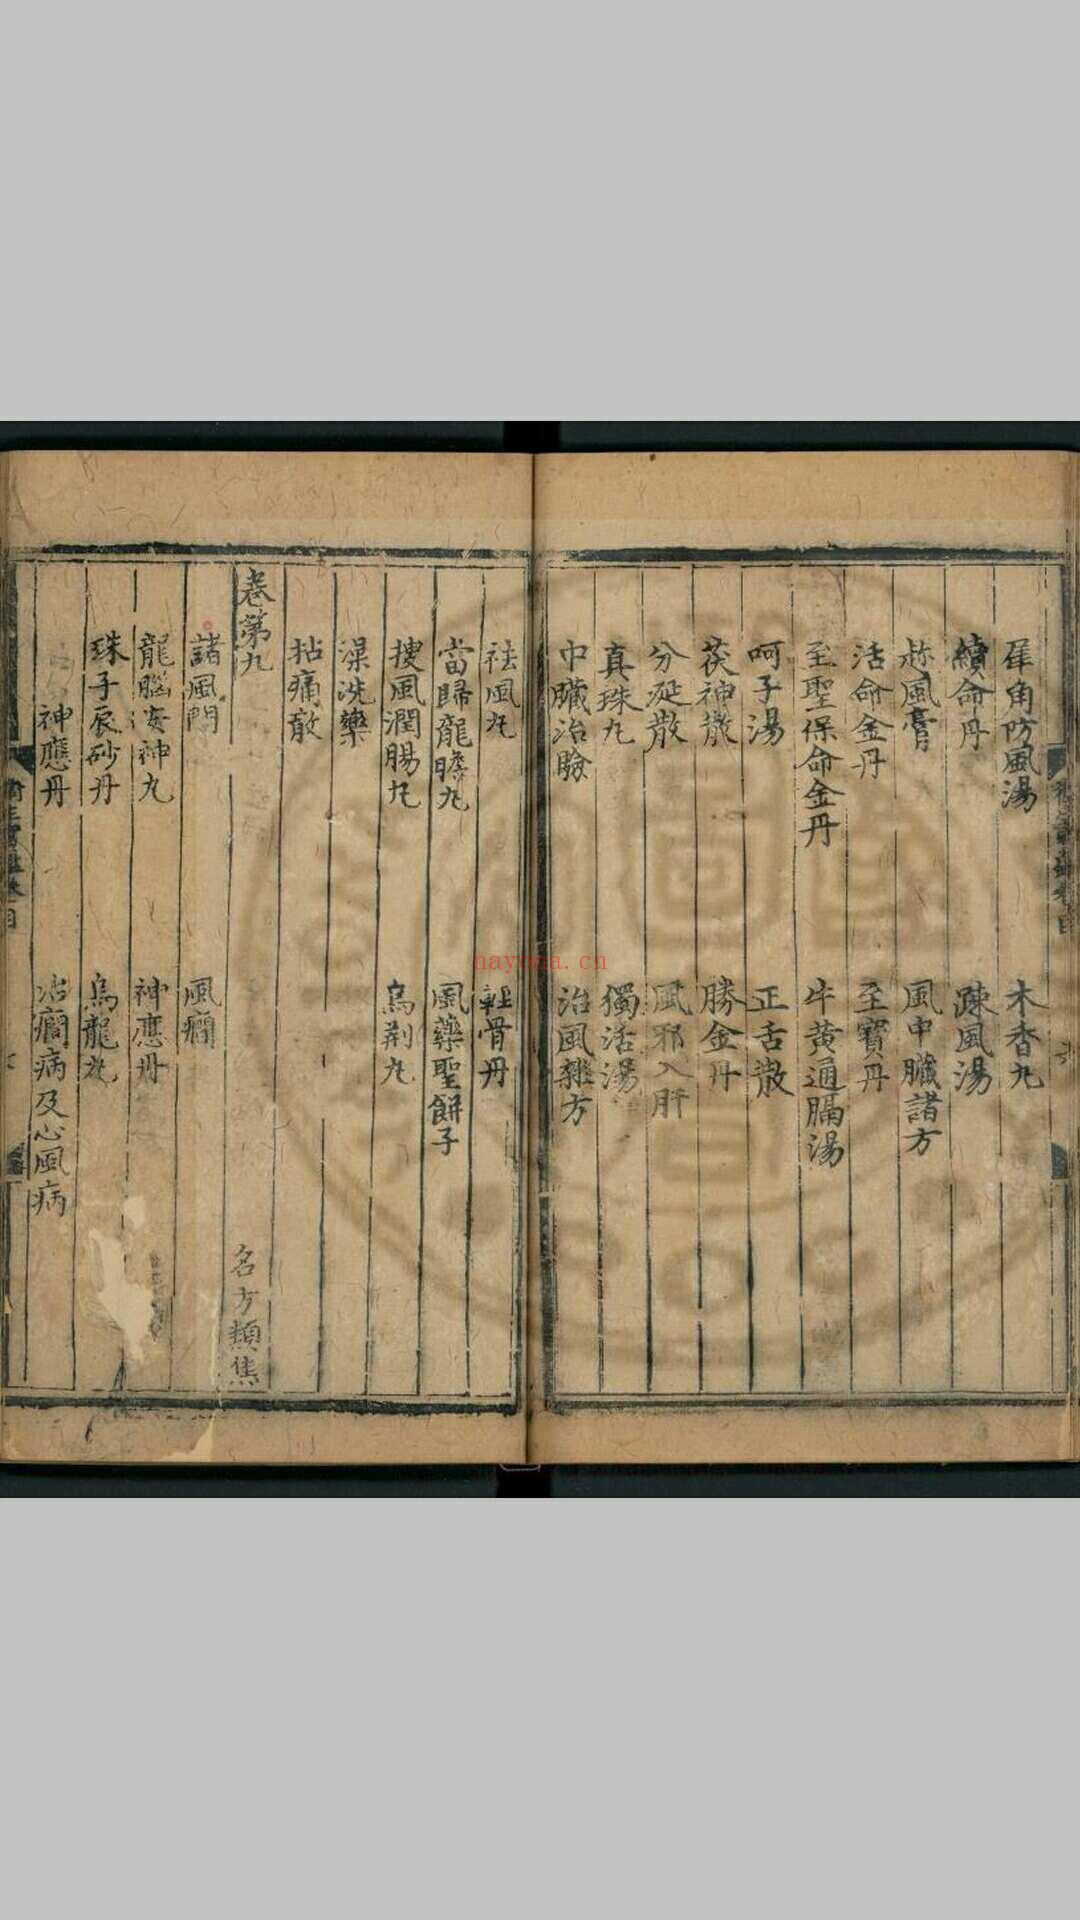 犀角防風湯 木香丸
續命丹 踈風湯
赤風膏 風中臟諸方
活命金丹 至寶丹
至聖保命金丹 牛黃通膈湯
呵子湯 正舌散
茯神散 勝金丹
分涎散 風邪入肝
真珠丸 獨活湯
中臟治驗 治風雜方
祛風丸 輕骨丹
當歸龍膽丸 風藥聖餅子
搜風潤腸丸 烏荆丸
澡洗藥
拈痛散
卷第九 名方類集
諸風門 風癇
龍腦安神丸 神應丹
珠子辰砂丹 烏龍丸
神應丹 治癇病及心風病
衛生寶鑑 目
nayona.cn